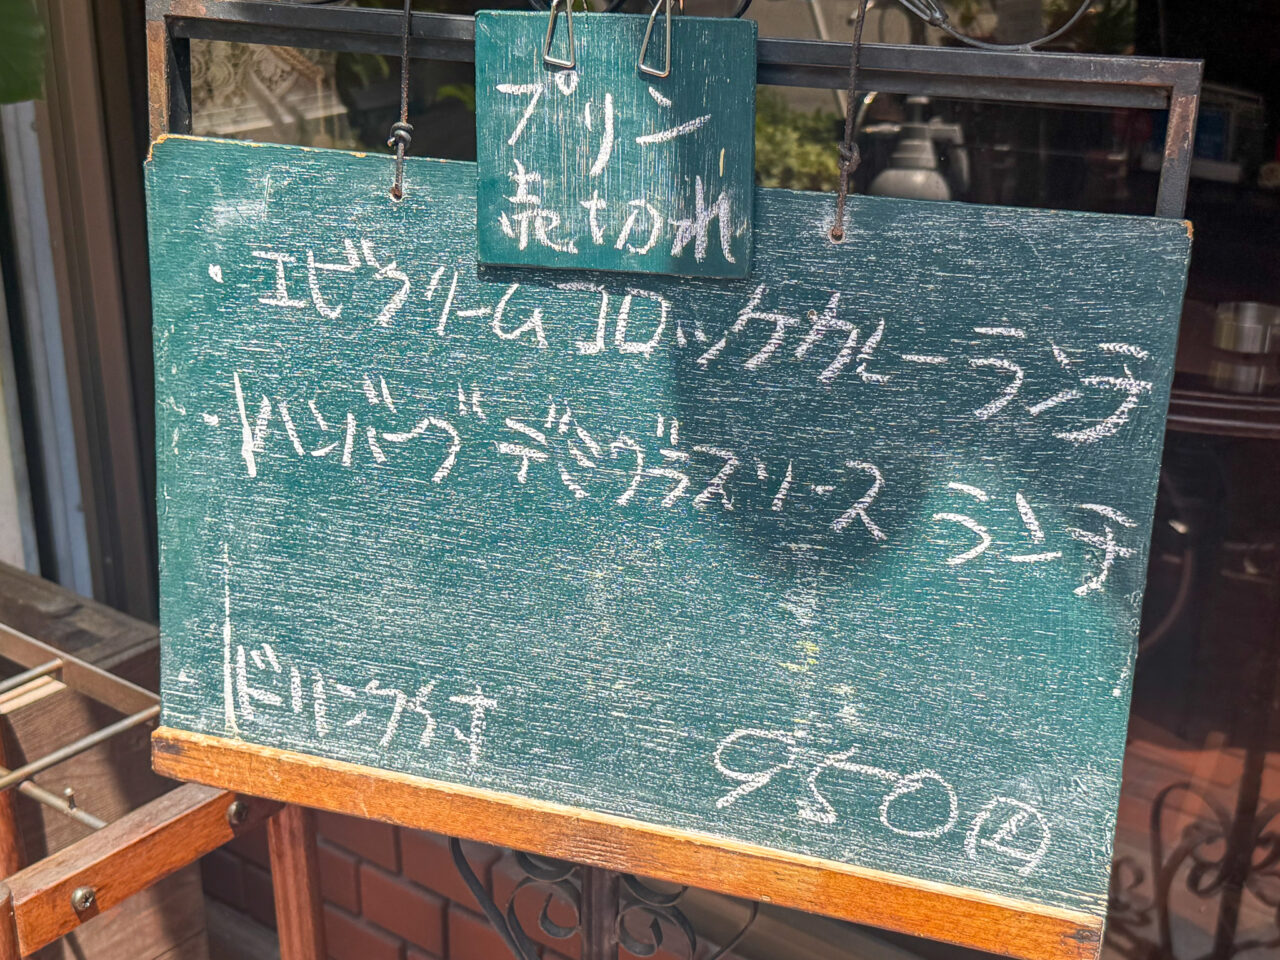 プリン
売切れ
・エビクリームコロッケカレーランチ
・ハンバーグ デミグラスソース ランチ
ドリンク付
950㊤